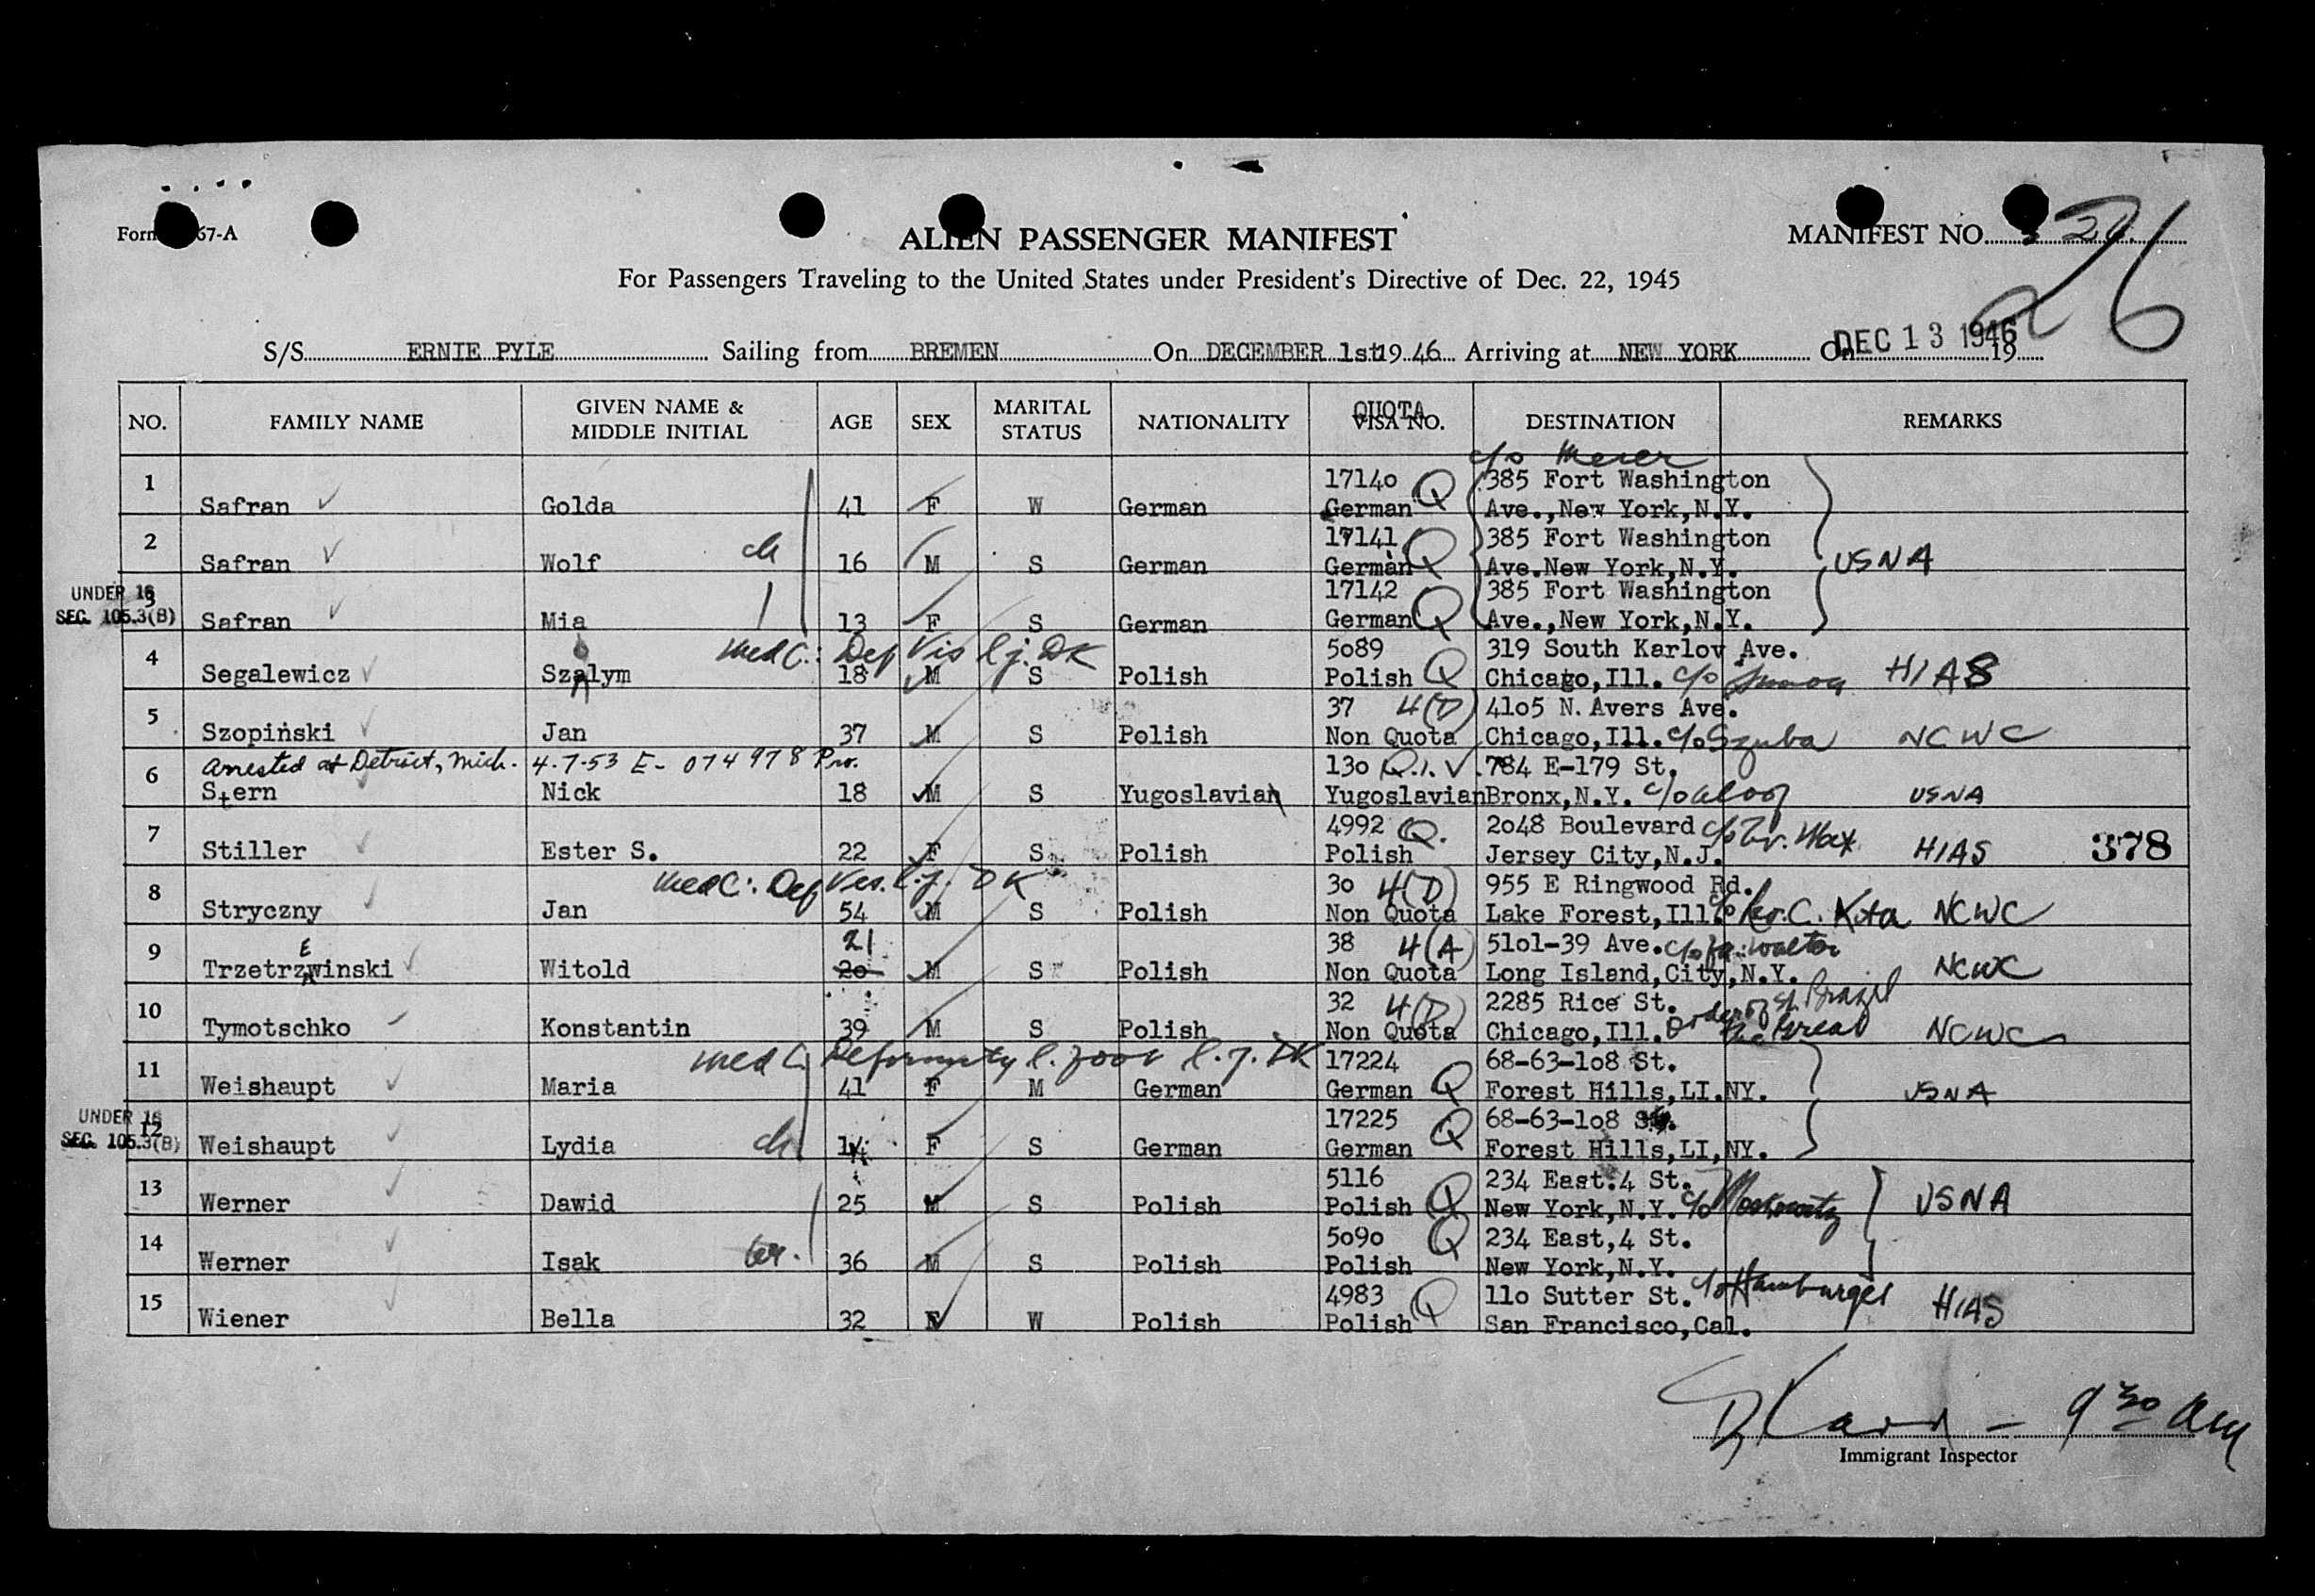 Form 67-A
ALIEN PASSENGER MANIFEST
MANIFEST NO. 26
For Passengers Traveling to the United States under President's Directive of Dec. 22, 1945
S/S ERNIE PYLE Sailing from BREMEN On DECEMBER 1st 19 46 Arriving at NEW YORK On DEC 13 1946 19
NO. FAMILY NAME GIVEN NAME & MIDDLE INITIAL AGE SEX MARITAL STATUS NATIONALITY QUOTA VISA NO. DESTINATION REMARKS
c/o Meier
1 17140 Q 385 Fort Washington
Safran Golda 41 F W German German Ave.,New York,N.Y.
2 17141 Q 385 Fort Washington
Safran Wolf ch 16 M S German German Ave.New York,N.Y. USNA
UNDER 16 3 17142 Q 385 Fort Washington
SEC. 105.3(B) Safran Mia 13 F S German German Ave.,New York,N.Y.
Med C.: Def Vis l.j. DK
4 5089 Q 319 South Karlov Ave.
Segalewicz Szalym 18 M S Polish Polish Chicago,Ill. c/o HIAS
5 37 4(D) 4105 N. Avers Ave.
Szopiński Jan 37 M S Polish Non Quota Chicago,Ill. c/o Szuba NCWC
Arrested at Detroit, Mich. 4-7-53 E-074978 Pro.
6 130 Q.I.V. 784 E-179 St.
Stern Nick 18 M S Yugoslavian Yugoslavian Bronx,N.Y. c/o USNA
7 4992 Q. 2048 Boulevard c/o Max
Stiller Ester S. 22 F S Polish Polish Jersey City,N.J. HIAS 378
Med C.: Def Vis. l.j. DK
8 30 4(D) 955 E Ringwood Rd.
Stryczny Jan 54 M S Polish Non Quota Lake Forest,Ill. c/o Rev. C. Kota NCWC
9 E 21 38 4(A) 5101-39 Ave. c/o Walter
Trzetrzwinski Witold 20 M S Polish Non Quota Long Island,City,N.Y. NCWC
10 32 4(D) 2285 Rice St. Order of St. Brazil
Tymotschko Konstantin 39 M S Polish Non Quota Chicago,Ill. the Great NCWC
Med C. Deformity l. foot l.j. DK
11 17224 68-63-108 St.
Weishaupt Maria 41 F M German German Q Forest Hills,LI.NY. USNA
UNDER 16 12 17225 68-63-108 St.
SEC. 105.3(B) Weishaupt Lydia ch 14 F S German German Q Forest Hills,LI,NY.
13 5116 234 East.4 St.
Werner Dawid 25 M S Polish Polish Q New York,N.Y. c/o Moskowitz USNA
14 5090 Q 234 East,4 St.
Werner Isak br. 36 M S Polish Polish New York,N.Y.
15 4983 Q 110 Sutter St. c/o Hamburger
Wiener Bella 32 F W Polish Polish San Francisco,Cal. HIAS
9 30 AM
Immigrant Inspector